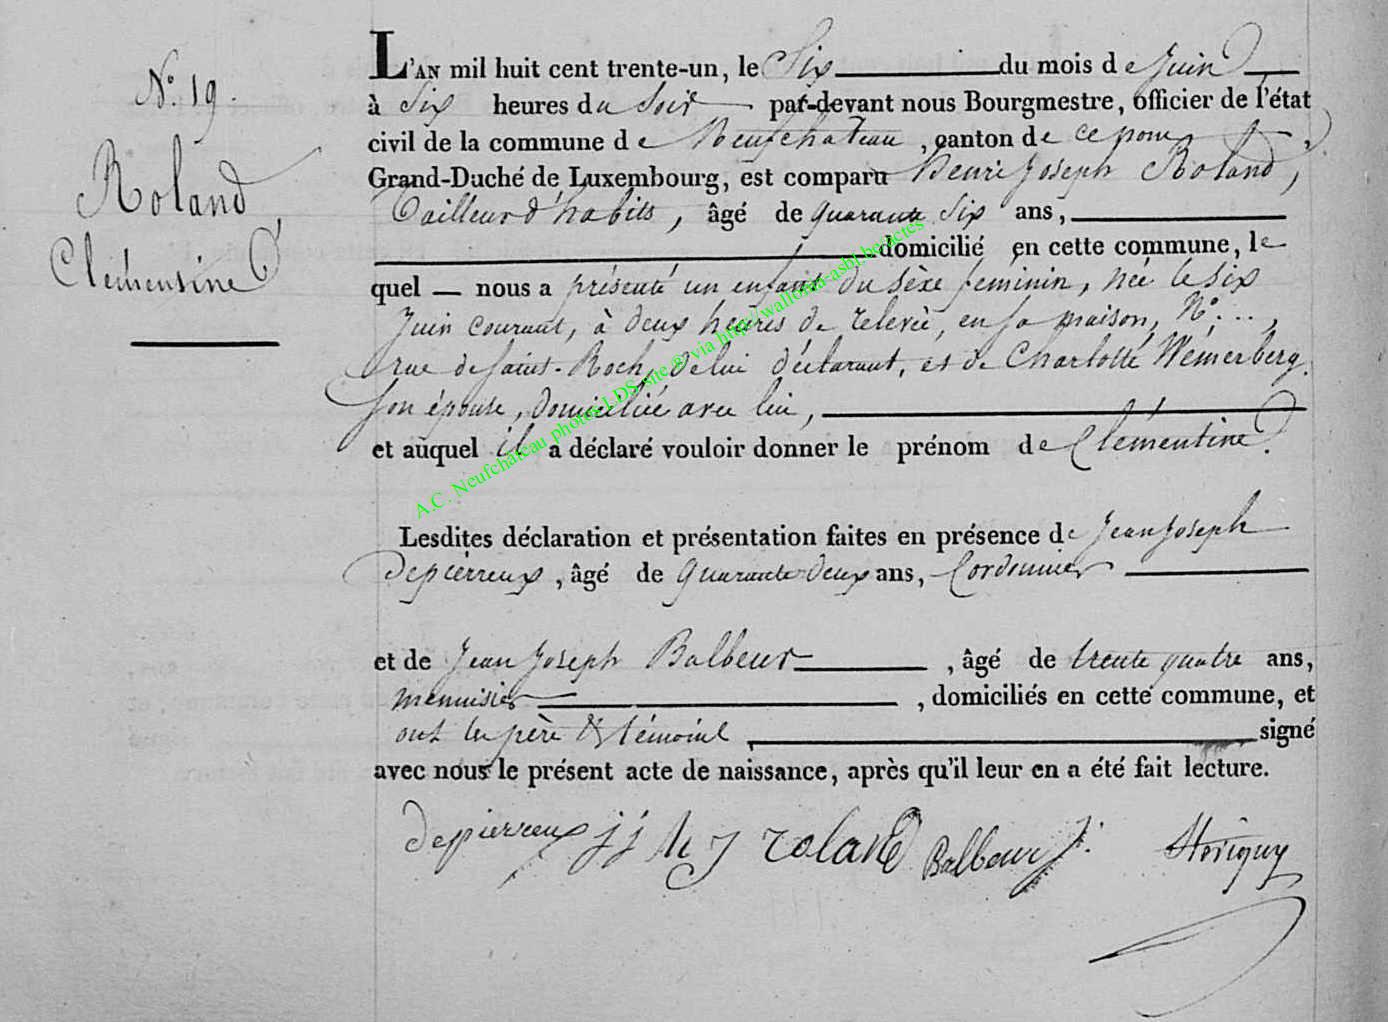 N.º 19.
Roland,
Clémentine
L'AN mil huit cent trente-un, le Six du mois de Juin
à Six heures du Soir par-devant nous Bourgmestre, officier de l'état
civil de la commune de Neufchateau, canton de ce nom,
Grand-Duché de Luxembourg, est comparu Henri Joseph Roland,
Tailleur d'habits, âgé de quarante Six ans,
domicilié en cette commune, le
quel nous a présenté un enfant du sèxe féminin, née le six
Juin courant, à deux heures de relevée, en sa maison, Nº...,
rue de Saint-Roch, de lui déclarant, et de Charlotte Wemerberg.
son épouse, domiciliée avec lui,
et auquel il a déclaré vouloir donner le prénom de Clémentine.
A.C. Neufchâteau photos LDS-site @ via http://wallonia-asbl.be/actes
Lesdites déclaration et présentation faites en présence de Jean Joseph
Depierreux, âgé de Quarante deux ans, Cordonnier
et de Jean Joseph Balbeur, âgé de trente quatre ans,
menuisier, domiciliés en cette commune, et
ont les père & témoins, signé
avec nous le présent acte de naissance, après qu'il leur en a été fait lecture.
depierreux jj h j roland Balbeur J.